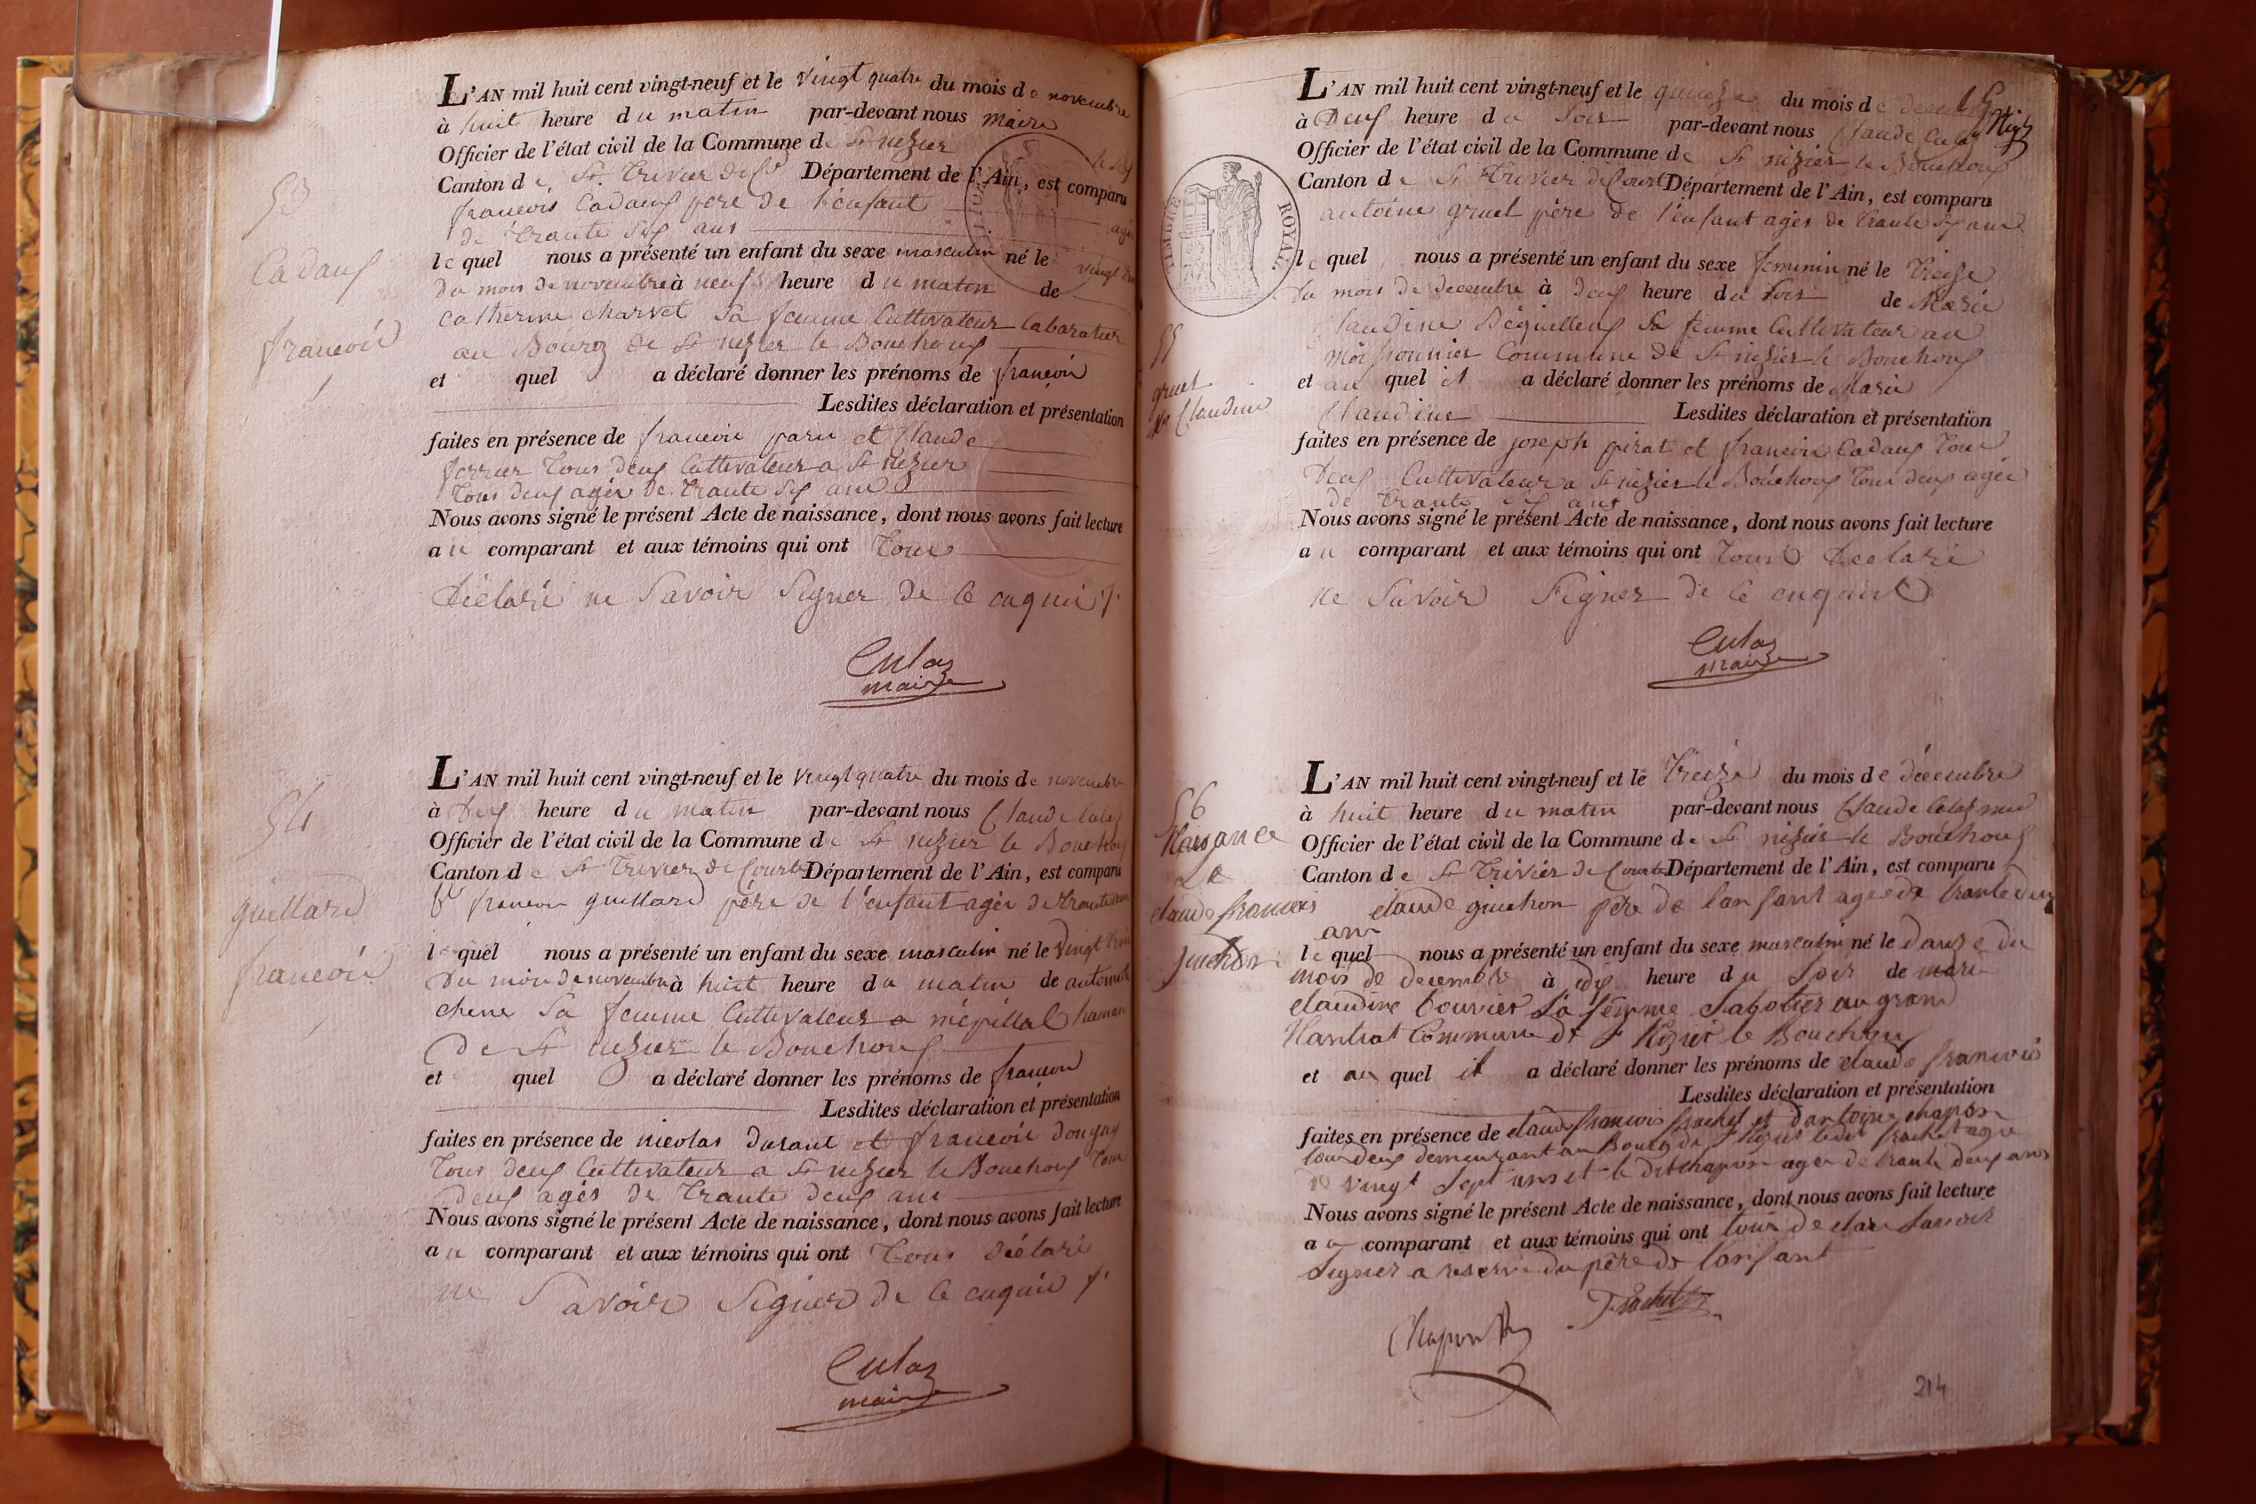 53
Cadauf
françois
L'AN mil huit cent vingt-neuf et le vingt quatre du mois de novembre
à huit heure du matin par-devant nous maire
Officier de l'état civil de la Commune de St nizier
Canton de St Trivier de Département de l'Ain, est comparu
françois Cadauf père de l'enfant agé
de trante six ans
lequel nous a présenté un enfant du sexe masculin né le vingt
du mois de novembre à neuf heure du matin de
catherine charvet sa femme Cultivateur
au Bourg de St nizier le Bouchouf
et quel a déclaré donner les prénoms de françois
Lesdites déclaration et présentation
faites en présence de françois et Claude
ferrier tous deuf Cultivateur a St nizier
tous deuf agés de trante six ans
Nous avons signé le présent Acte de naissance, dont nous avons fait lecture
au comparant et aux témoins qui ont tous
déclaré ne Savoir Signer de ce enquis
Culas
maire
54
guillard
françois
L'AN mil huit cent vingt-neuf et le vingt quatre du mois de novembre
à heure du matin par-devant nous Claude
Officier de l'état civil de la Commune de St nizier le Bouchouf
Canton de St Trivier de Courte Département de l'Ain, est comparu
françois guillard père de l'enfant agés de trante
lequel nous a présenté un enfant du sexe masculin né le vingt trois
du mois de novembre à huit heure du matin de antoinette
chene sa femme Cultivateur a hameau
De St nizier le Bouchouf
et quel a déclaré donner les prénoms de françois
Lesdites déclaration et présentation
faites en présence de nicolas durant et françois
tous deuf Cultivateur a St nizier le Bouchouf tous
deuf agés de trante deuf ans
Nous avons signé le présent Acte de naissance, dont nous avons fait lecture
au comparant et aux témoins qui ont tous déclaré
ne Savoir Signer de ce enquis
Culas
maire
TIMBRE ROYAL
55
gruel
Claudine
L'AN mil huit cent vingt-neuf et le quinze du mois de
à Deuf heure du Soir par-devant nous Claude
Officier de l'état civil de la Commune de St nizier le Bouchouf
Canton de St Trivier de Courte Département de l'Ain, est comparu
antoine gruel père de l'enfant agés de trante six ans
lequel nous a présenté un enfant du sexe feminin né le treize
du mois de decembre à deuf heure du soir de Marie
Claudine sa femme Cultivateur au
Commune de St nizier le Bouchouf
et au quel il a déclaré donner les prénoms de Marie
Claudine Lesdites déclaration et présentation
faites en présence de joseph pirat et françois Cadauf tous
Deuf Cultivateur a St nizier le Bouchouf tous deuf agés
de trante six ans
Nous avons signé le présent Acte de naissance, dont nous avons fait lecture
au comparant et aux témoins qui ont tous déclaré
ne Savoir Signer de ce enquis
Culas
maire
56
Naisance
De
claude françois
guichon
L'AN mil huit cent vingt-neuf et le treize du mois de décembre
à huit heure du matin par-devant nous Claude
Officier de l'état civil de la Commune de St nizier le Bouchouf
Canton de St Trivier de Courte Département de l'Ain, est comparu
claude guichon père de lanfant agee de trante deux
ans
lequel nous a présenté un enfant du sexe masculin né le douze du
mois de decembre à dix heure du Soir de marie
claudine bouvier Sa femme Sabotier au grand
Commune de St Nizier le Bouchouf
et au quel il a déclaré donner les prénoms de claude françois
Lesdites déclaration et présentation
faites en présence de claude françois frachet et dantoine chapon
tous deux demeurant au Bourg de St Nizier ledit frachet agee
de vingt Sept ans et le dit chapon agee de trante deux ans
Nous avons signé le présent Acte de naissance, dont nous avons fait lecture
au comparant et aux témoins qui ont tous declare Savoir
Signer a reserve du père de lanfant
Frachet
Chapon
214